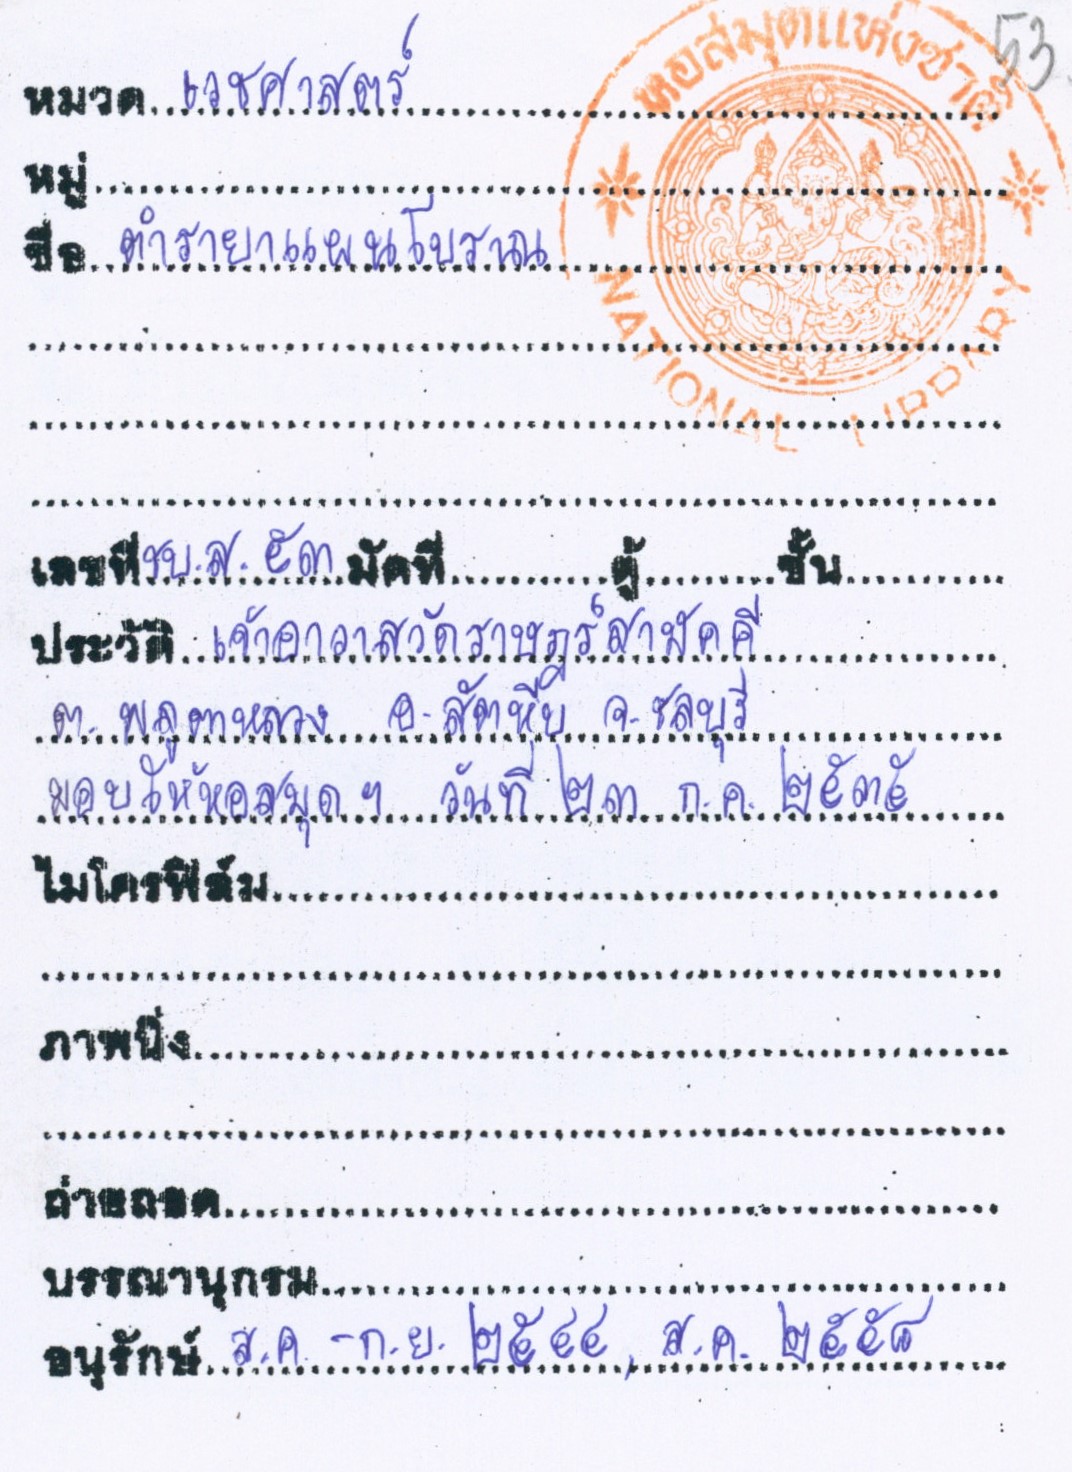 53
หอสมุดแห่งชาติ
NATIONAL LIBRARY
หมวด เวชศาสตร์
หมู่
ชื่อ ตำรายาแผนโบราณ
เลขที่ ชบ.ส. ๕๓ มัดที่ ตู้ ชั้น
ประวัติ เจ้าอาวาสวัดราษฎร์สามัคคี
ต. พลูตาหลวง อ. สัตหีบ จ. ชลบุรี
มอบให้หอสมุดฯ วันที่ ๒๓ ก.ค. ๒๕๓๕
ไมโครฟิล์ม
ภาพนิ่ง
ถ่ายถอด
บรรณานุกรม
อนุรักษ์ ส.ค. - ก.ย. ๒๕๔๔, ส.ค. ๒๕๕๘